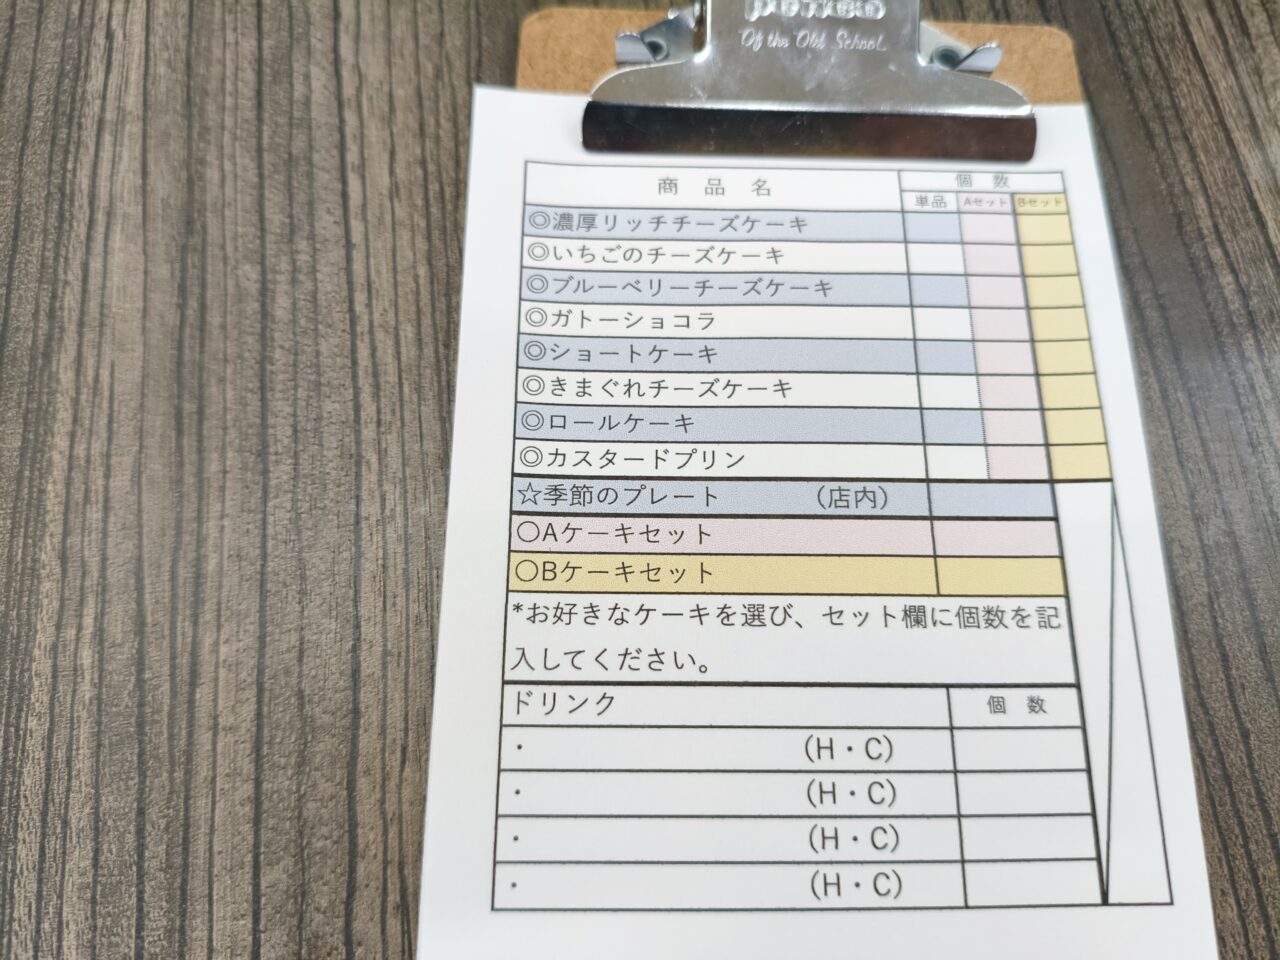 Of the Old School
商品名 個数
単品 Aセット Bセット
◎濃厚リッチチーズケーキ
◎いちごのチーズケーキ
◎ブルーベリーチーズケーキ
◎ガトーショコラ
◎ショートケーキ
◎きまぐれチーズケーキ
◎ロールケーキ
◎カスタードプリン
☆季節のプレート (店内)
○Aケーキセット
○Bケーキセット
*お好きなケーキを選び、セット欄に個数を記
入してください。
ドリンク 個数
・ (H・C)
・ (H・C)
・ (H・C)
・ (H・C)